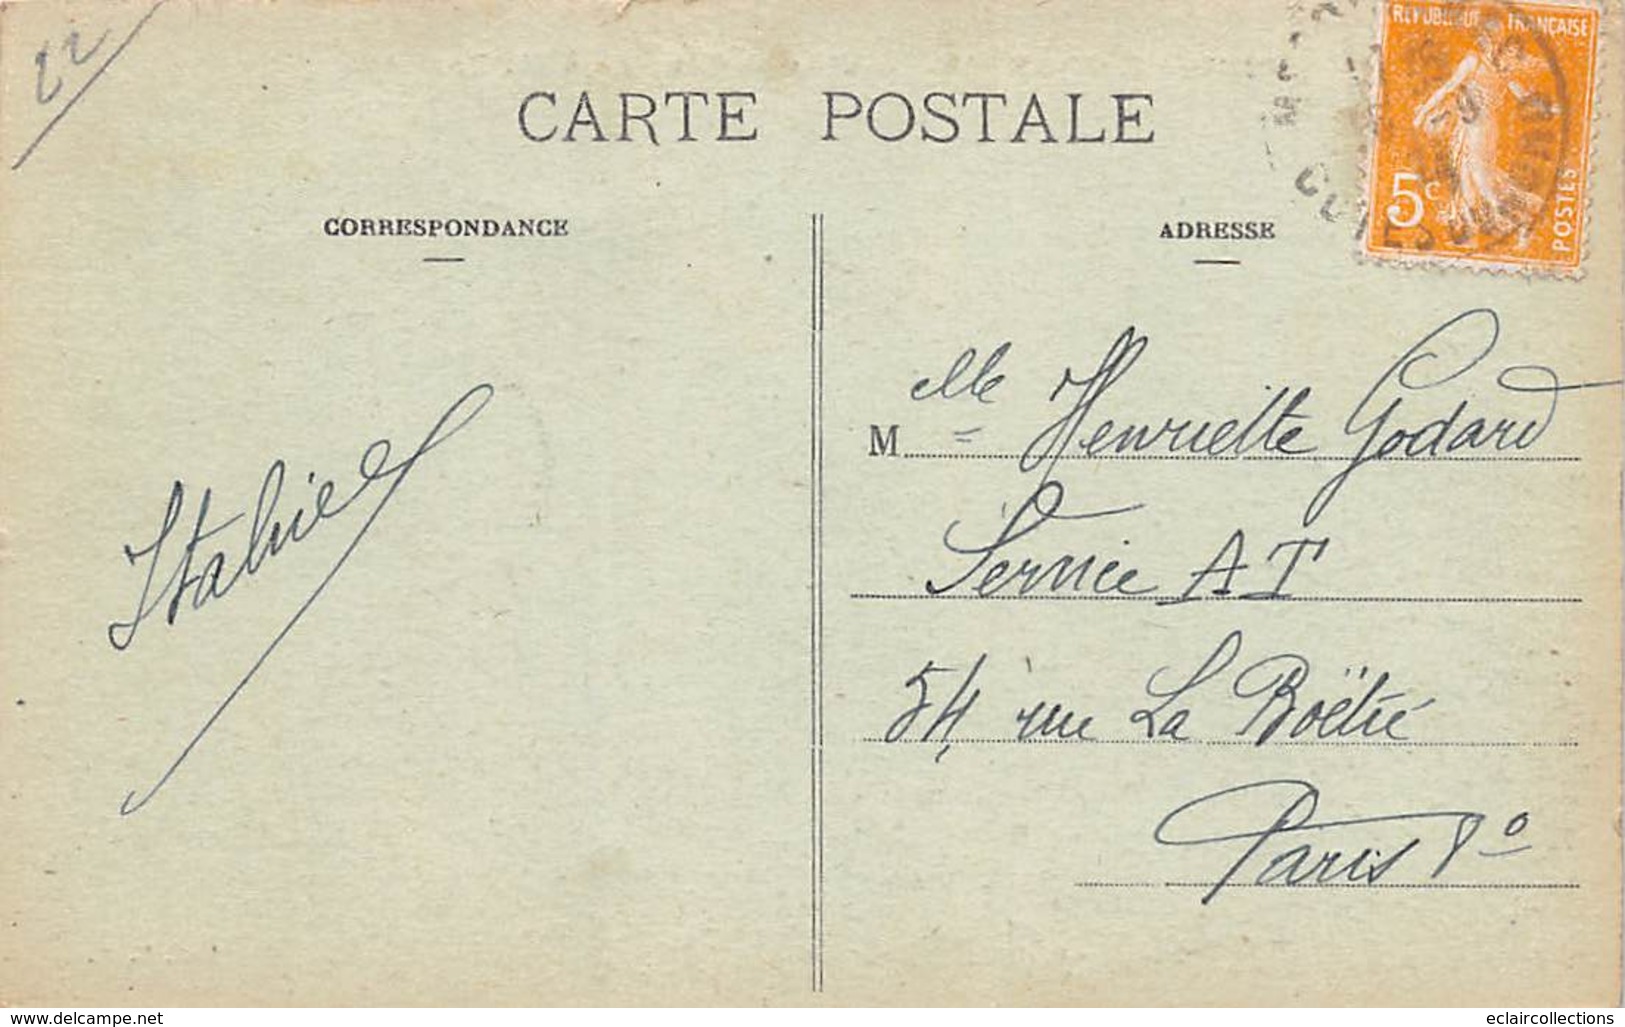 22
CARTE POSTALE
REPUBLIQUE FRANÇAISE
5c
POSTES
COTES DU NORD
CORRESPONDANCE
ADRESSE
Mlle Henriette Godard
Service AT
54, rue La Boëtie
Paris 8o
www.delcampe.net
eclaircollections